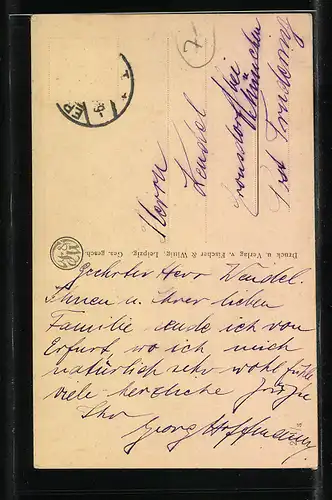 7
ER
Herrn
Wendel
Gronsdorf bei
München
Post Trudering
Druck u. Verlag v. Fischer & Wittig, Leipzig. Ges. gesch.
Geehrter Herr Wendel.
Ihnen u. Ihrer lieben
Familie sende ich von
Erfurt, wo ich mich
natürlich sehr wohl fühle
viele herzliche Grüße
Ihr
Georg Hoffmann